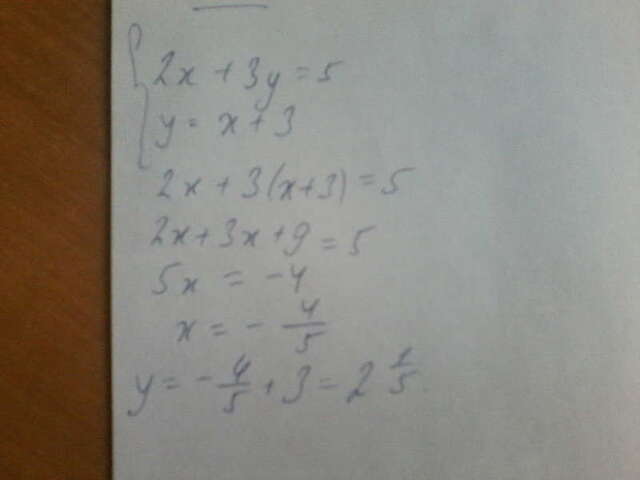 2x + 3y = 5
y = x + 3
2x + 3(x+3) = 5
2x + 3x + 9 = 5
5x = -4
x = - 4/5
y = - 4/5 + 3 = 2 1/5.